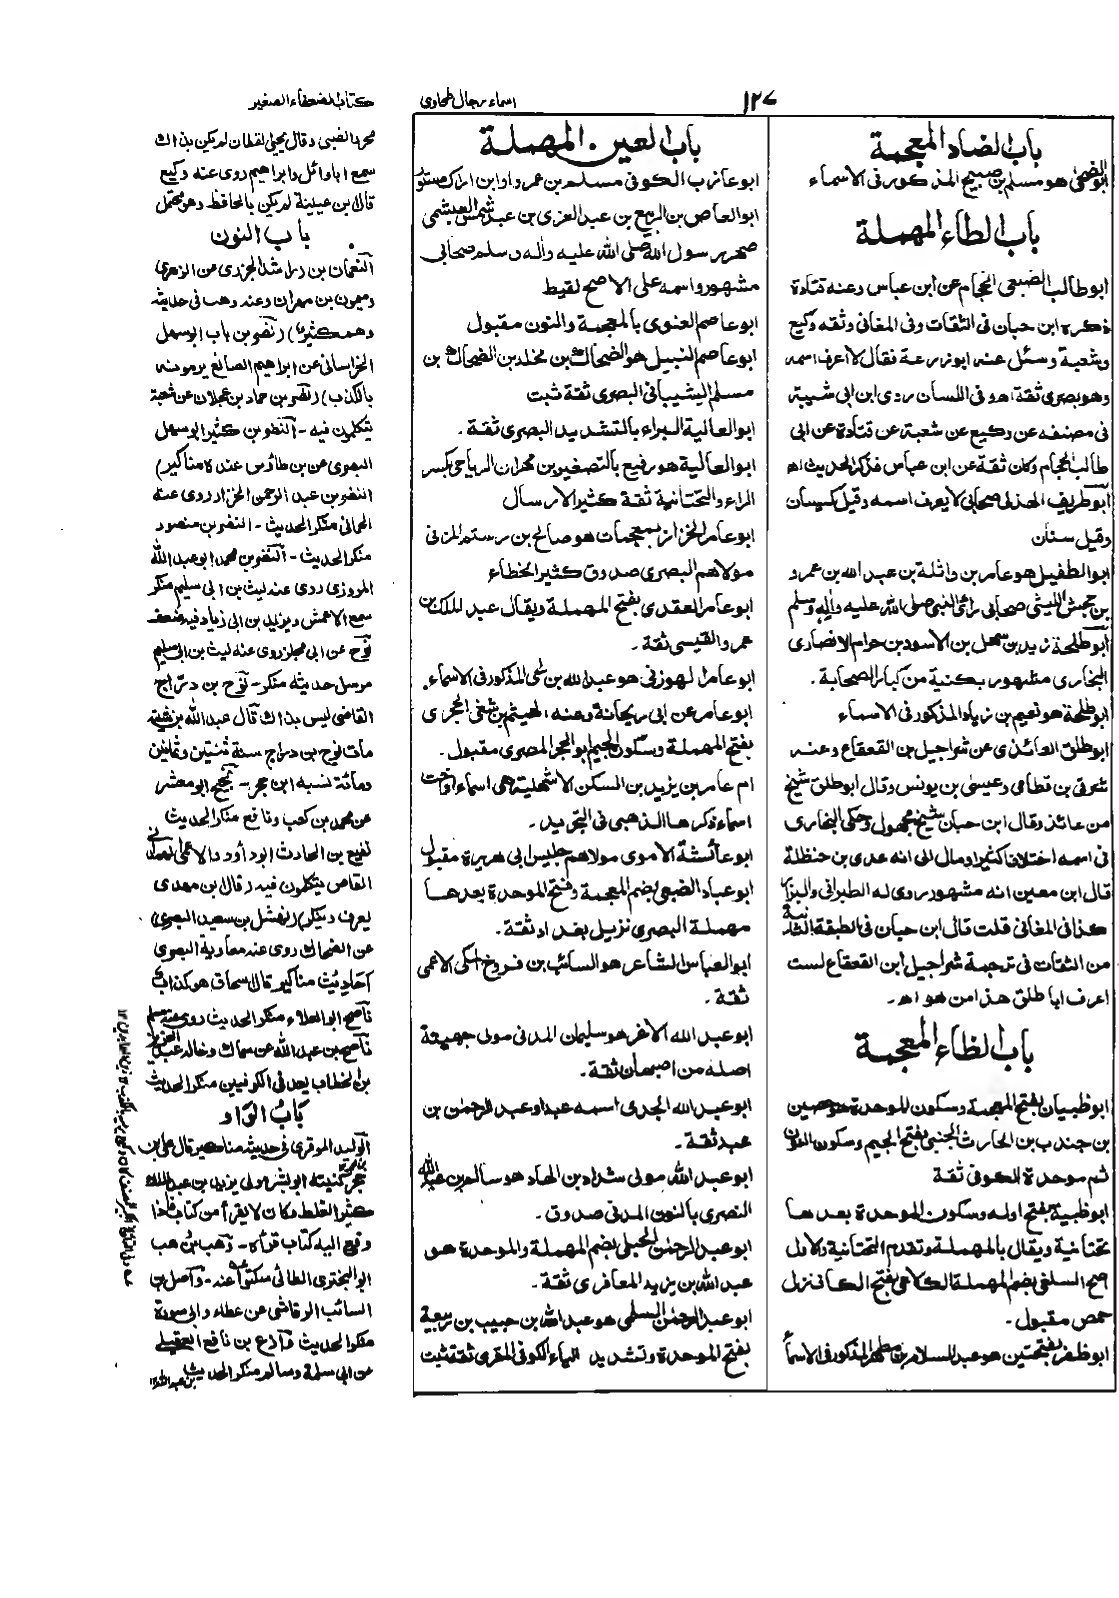 ١٢٧
اسماء رجال طحاوی
كتاب الضعفاء الصغير
باب الضاد المعجمة
ابو الضحى هو مسلم بن صبيح المذكور فى الاسماء
باب الطاء المهملة
ابو طالب الضبعى الحجام عن ابن عباس وعنه قتادة
ذكره ابن حبان فى الثقات وفى المغانى وثقه وكيع
وشعبة وسئل عنه ابو زرعة فقال لا اعرف اسمه
وهو بصرى ثقة اهـ وفى اللسان روى ابن ابى شيبة
فى مصنفه عن وكيع عن شعبة عن قتادة عن ابى
طالب الحجام وكان ثقة عن ابن عباس فذكر الحديث اهـ
ابو طريف الهذلى صحابى لا يعرف اسمه وقيل كيسان
وقيل سنان
ابو الطفيل هو عامر بن واثلة بن عبد الله بن عمرو
بن جحش الليثى صحابى رأى النبى صلى الله عليه وأله وسلم
ابو طلحة زيد بن سهل بن الاسود بن حرام الانصارى
البخارى مشهور بكنية من كبار الصحابة ـ
ابو طلحة هو نعيم بن زياد المذكور فى الاسماء
ابو طلق العائذى عن شراحيل بن القعقاع وعنه
شرقى بن قطامى وعيسى بن يونس وقال ابو طلق شيخ
من عائذ وقال ابن حبان شيخ مجهول وحكى البخارى
فى اسمه اختلافا كثيرا ومال الى انه عدى بن حنظلة
قال ابن معين انه مشهور روى له الطبرانى والبزار
كذا فى المغانى قلت قال ابن حبان فى الطبقة الثانية
من الثقات فى ترجمة شراحيل ابن القعقاع لست
اعرف ابا طلق هذا من هو اهـ ـ
باب الظاء المعجمة
ابو ظبيان بفتح المعجمة وسكون الموحدة هو حصين
بن جندب بن الحارث الجنبى بفتح الجيم وسكون النون
ثم موحدة الكوفى ثقة
ابو ظبية بفتح اوله وسكون الموحدة بعدها
تحتانية ويقال بالمهملة وتقدم التحتانية والاول
اصح السلفى بضم المهملة الكلاعى بفتح الكاف نزل
حمص مقبول ـ
ابو ظفر بفتحتين هو عبد السلام بن مطهر المذكور فى الاسماء
باب العين المهملة
ابو عازب الكوفى مسلم بن عمرو او ابن اراك مستور
ابو العاص بن الربيع بن عبد العزى بن عبد شمس العبشمى
صهر رسول الله صلى الله عليه واله وسلم صحابى
مشهور واسمه على الاصح لقيط
ابو عاصم الغنوى بالمعجمة والنون مقبول
ابو عاصم النبيل هو الضحاك بن مخلد بن الضحاك بن
مسلم الشيبانى البصرى ثقة ثبت
ابو العالية البراء بالتشديد البصرى ثقة ـ
ابو العالية هو رفيع بالتصغير بن مهران الرياحى بكسر
الراء والتحتانية ثقة كثير الارسال
ابو عامر الخزاز بمعجمات هو صالح بن رستم المزنى
مولاهم البصرى صدوق كثير الخطاء
ابو عامر العقدى بفتح المهملة ويقال عبد الملك بن
عمرو القيسى ثقة ـ
ابو عامر الهوزنى هو عبد الله بن لحى المذكور فى الاسماء ـ
ابو عامر عن ابى ريحانة وعنه الهيثم بن شفى الحجرى
بفتح المهملة وسكون الجيم ابو الحجر المصرى مقبول ـ
ام عامر بن يزيد بن السكن الاشهلية هى اسماء او اخت
اسماء ذكرها الذهبى فى التجريد ـ
ابو عائشة الاموى مولاهم جليس ابى هريرة مقبول
ابو عباد الضبعى بضم المعجمة وفتح الموحدة بعدها
مهملة البصرى نزيل بغداد ثقة ـ
ابو العباس الشاعر هو السائب بن فروخ المكى الاعمى
ثقة ـ
ابو عبد الله الاغر هو سليمان المدنى مولى جهينة
اصله من اصبهان ثقة ـ
ابو عبد الله الجدلى اسمه عبد او عبد الرحمن بن
عبد ثقة ـ
ابو عبد الله مولى شداد بن الهاد هو سالم بن عبد الله
النصرى بالنون المدنى صدوق ـ
ابو عبد الرحمن الحبلى بضم المهملة والموحدة هو
عبد الله بن يزيد المعافرى ثقة ـ
ابو عبد الرحمن السلمى هو عبد الله بن حبيب بن ربيعة
بفتح الموحدة وتشديد الياء الكوفى المقرى ثقة ثبت
محرد الضبى وقال يحيى القطان لم يكن بذاك
سمع ابا وائل وابراهيم روى عنه وكيع
قال ابن عيينة لم يكن بالحافظ وهو محتمل
باب النون
النعمان بن راشد الجزرى عن الزهرى
وميمون بن مهران وعنه وهب فى حديثه
وهم كثير) (نصر بن باب ابو سهل
الخراسانى عن ابراهيم الصائغ يرمونه
بالكذب) (نصر بن حماد بن عجلان عن شعبة
يتكلمون فيه ـ النضر بن كثير ابو سهل
البصرى عن بن طاؤس عنده مناكير)
النضر بن عبد الرحمن الخزاز روى عنه
الحمانى منكر الحديث ـ النضر بن منصور
منكر الحديث ـ النضر بن محمد ابو عبد الله
المروزى روى عنه ليث بن ابى سليم منكر
سمع الاعمش ويزيد بن ابى زياد فيه ضعف
نوح عن ابى مجلز روى عنه ليث بن ابى سليم
مرسل حديثه منكر ـ نوح بن دراج
القاضى ليس بذاك قال عبد الله بن شيبة
مات نوح بن دراج سنة ثنتين وثمانين
ومائة نسبه ابن حجر ـ نجيح ابو معشر
عن محمد بن كعب ونافع منكر الحديث
نفيع بن الحارث ابو داود الاعمى الهمدانى
القاص يتكلمون فيه (قال ابن مهدى
يعرف وينكر) (نهشل بن سعيد البصرى
عن الضحاك روى عنه معاوية البصرى
احاديث مناكير قال اسحاق هو كذاب
ناصح ابو العلاء منكر الحديث روى عنه مسلم
ناصح بن عبد الله عن سماك وخالد عبد العزيز
بن الخطاب يعد فى الكوفيين منكر الحديث
باب الواو
الوليد الموقرى فى حديثه مناكير قال على بن
حجر كنيته ابو بشر مولى يزيد بن عبد الملك
كثير الغلط وكان لا يقرأ من كتاب فاذا
دفع اليه كتاب قرأه ـ وهب بن وهب
ابو البخترى القاضى سكتوا عنه ـ واصل بن
السائب الرقاشى عن عطاء وابى سورة
منكر الحديث وازع بن نافع العقيلى
عن ابى سلمة وسالم بن عبد الله منكر الحديث